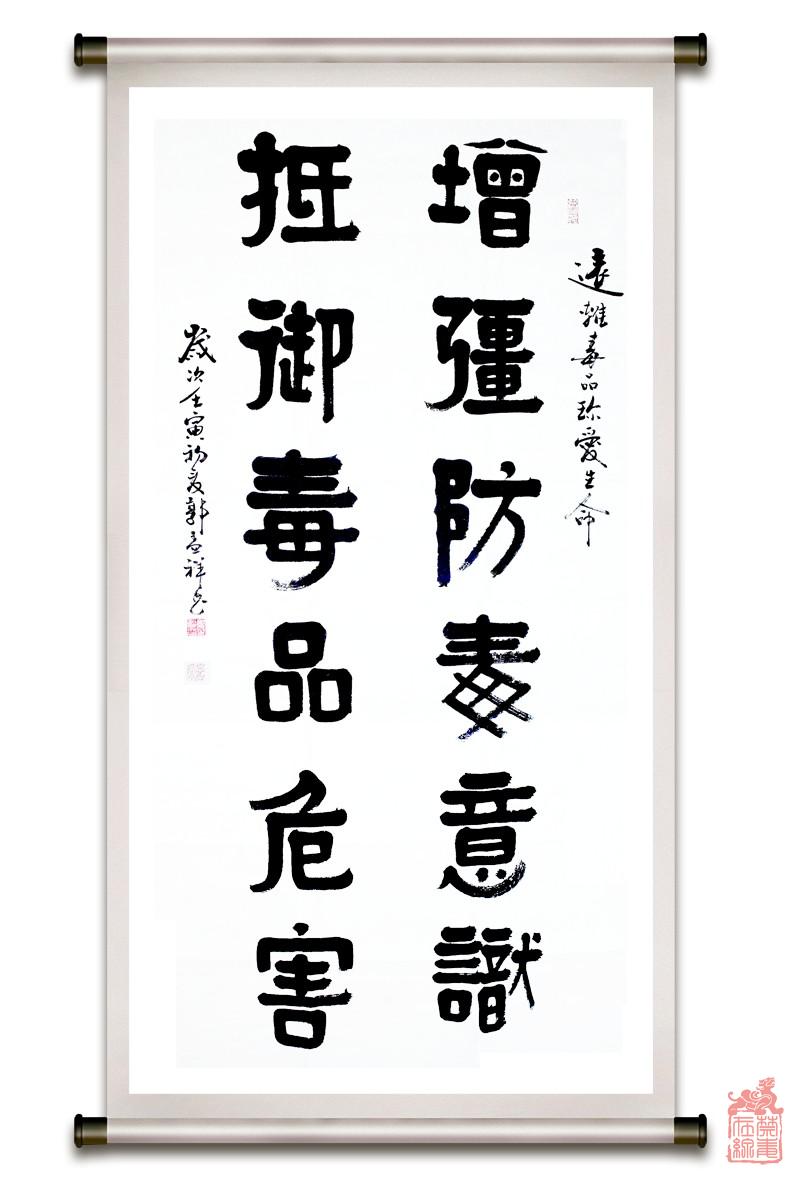 遠離毒品珍愛生命
增彊防毒意識
抵御毒品危害
歲次壬寅初夏郭孟祥書